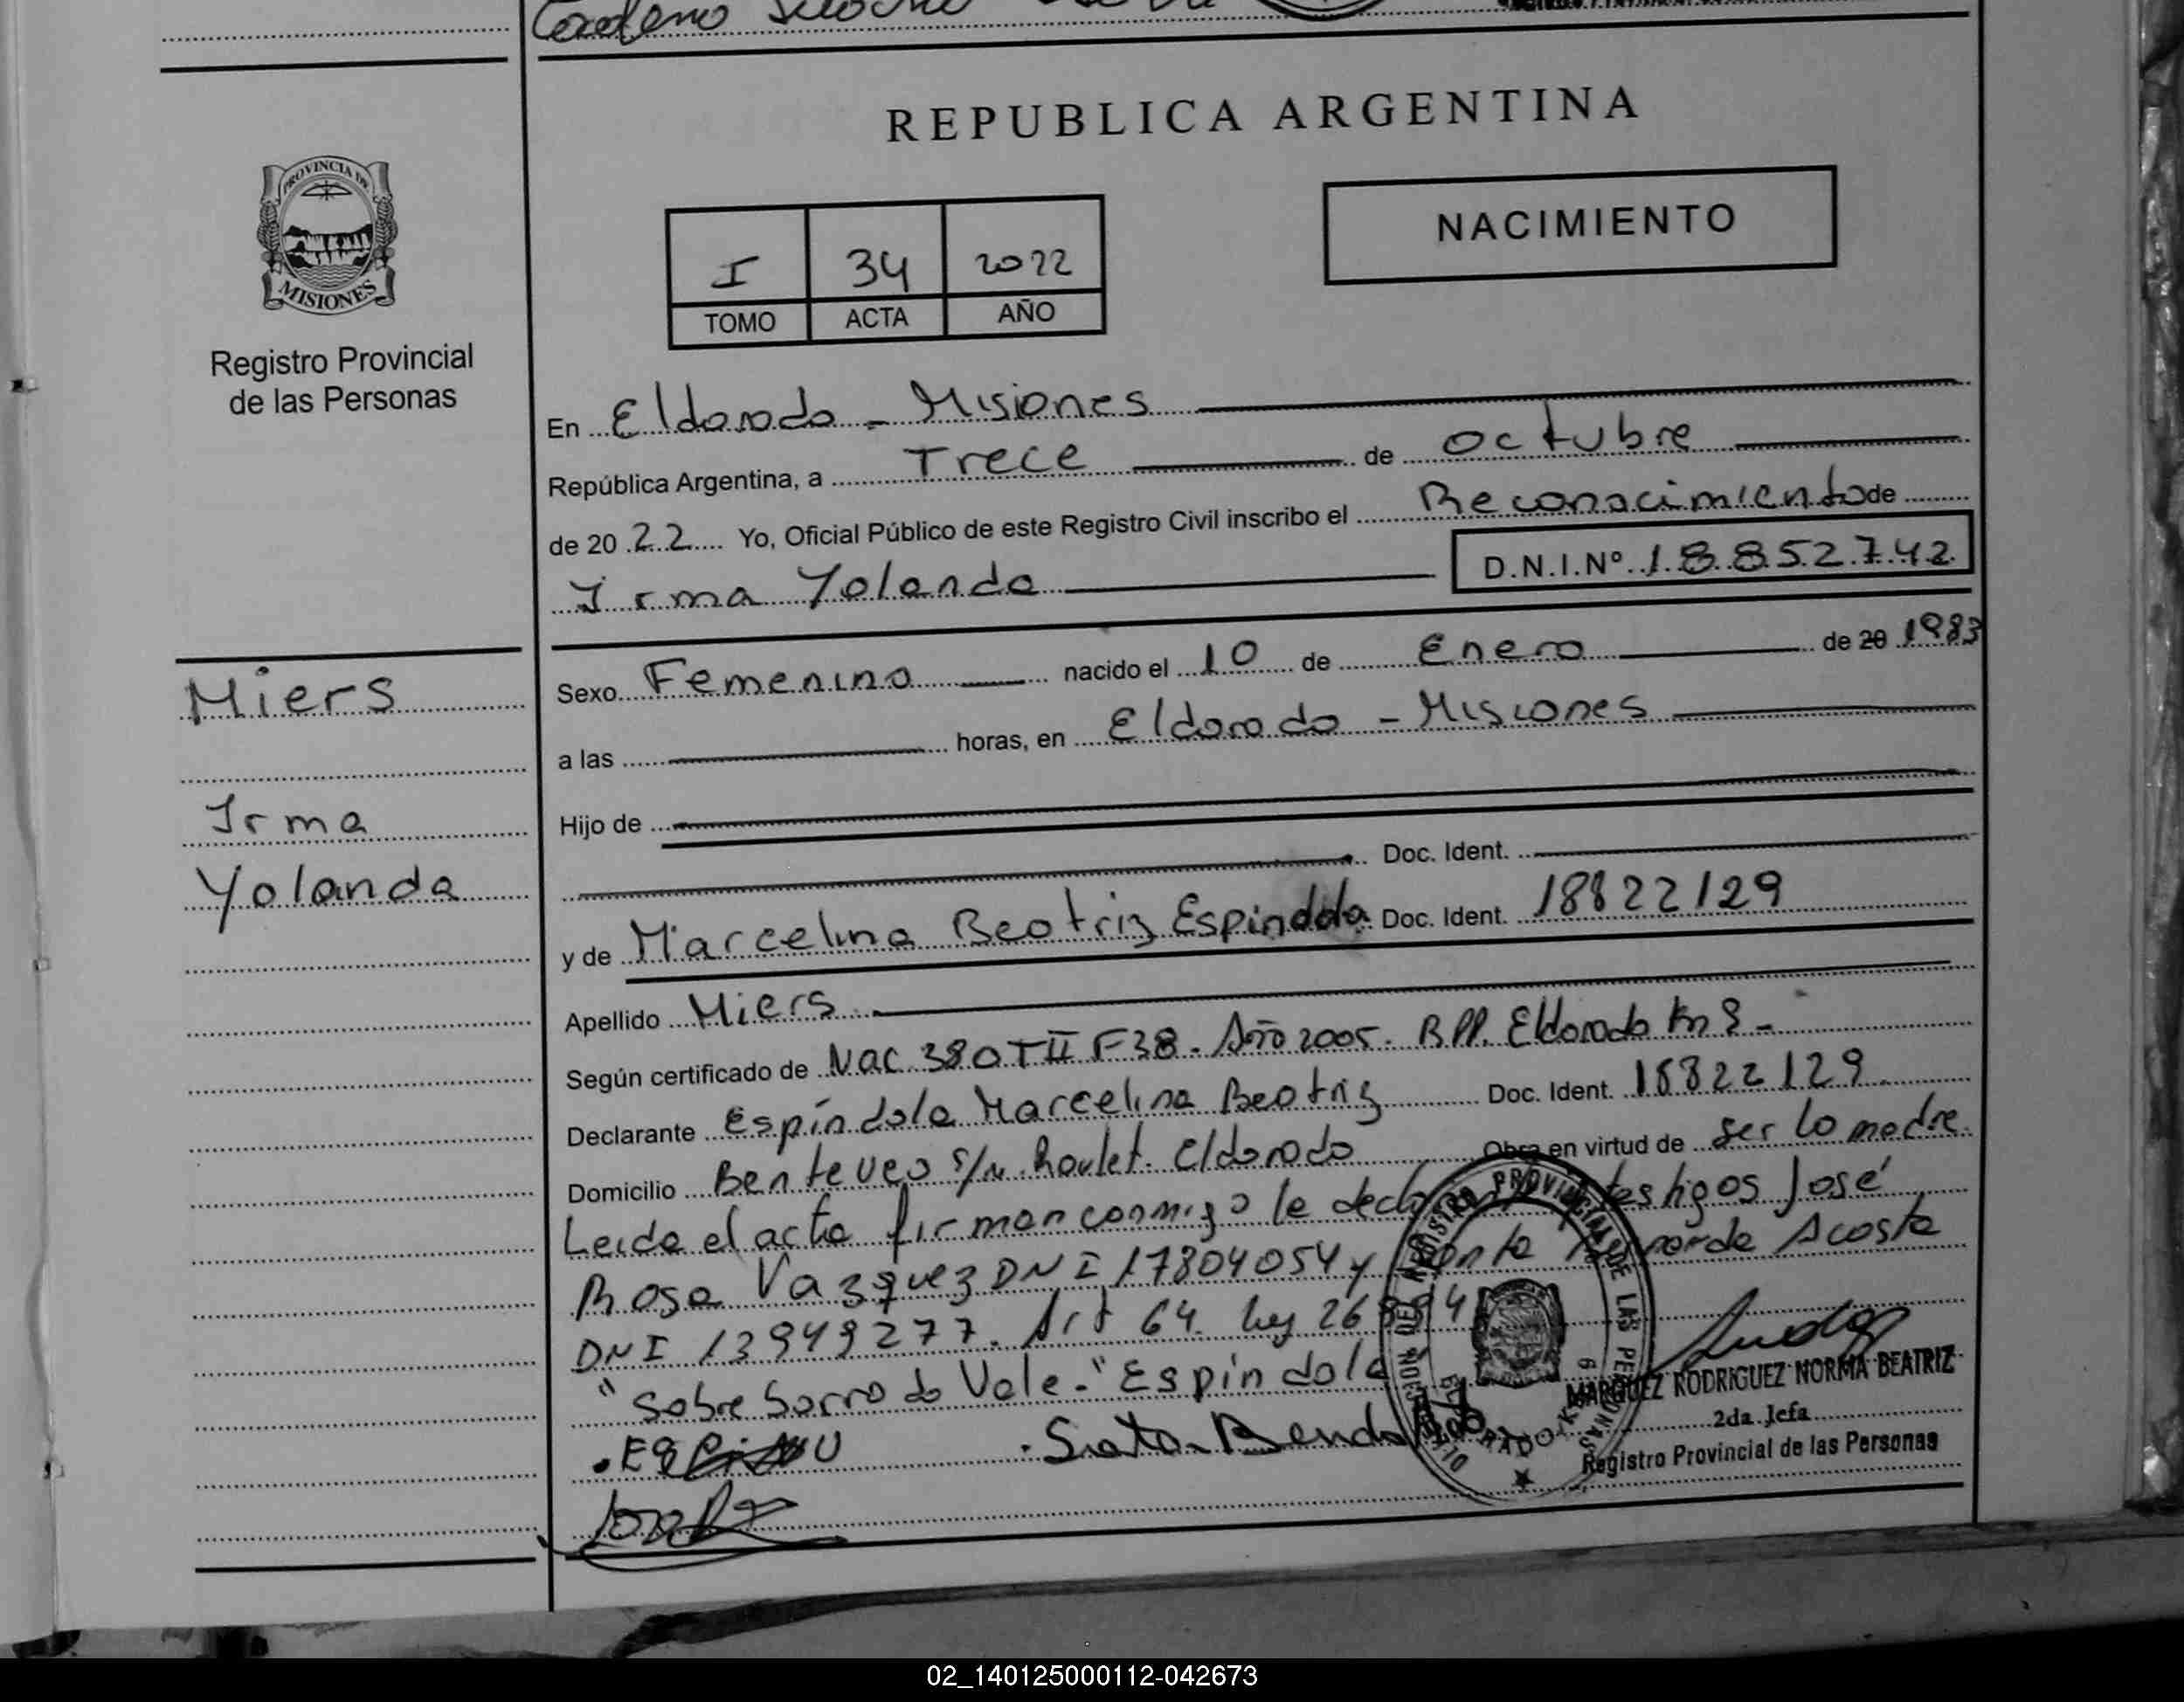 REPUBLICA ARGENTINA
PROVINCIA DE
MISIONES
Registro Provincial
de las Personas
NACIMIENTO
I 34 2022
TOMO ACTA AÑO
En Eldorado - Misiones
República Argentina, a Trece de octubre
de 20 22 Yo, Oficial Público de este Registro Civil inscribo el Reconocimiento de
Irma Yolanda D.N.I.Nº 18852742
Miers
Irma
Yolanda
Sexo Femenino nacido el 10 de Enero de 20 1983
a las horas, en Eldorado - Misiones
Hijo de
Doc. Ident.
y de Marcelina Beatriz Espindola Doc. Ident. 18822129
Apellido Miers
Según certificado de Nac 380 T II F 38. Año 2005. RPP. Eldorado Km 9 -
Declarante Espíndola Marcelina Beatriz Doc. Ident. 18822129
Domicilio Benteveo s/n Roulet. Eldorado Obra en virtud de ser la madre
Leida el acta firman conmigo la testigos José
Rosa Vazquez DNI 17804054 y Acosta
DNI 13949277. Art 64. Ley 26994
"Sobre borrado Vale." Espíndola
MARQUEZ RODRIGUEZ NORMA BEATRIZ
2da. Jefa
Registro Provincial de las Personas
02_140125000112-042673